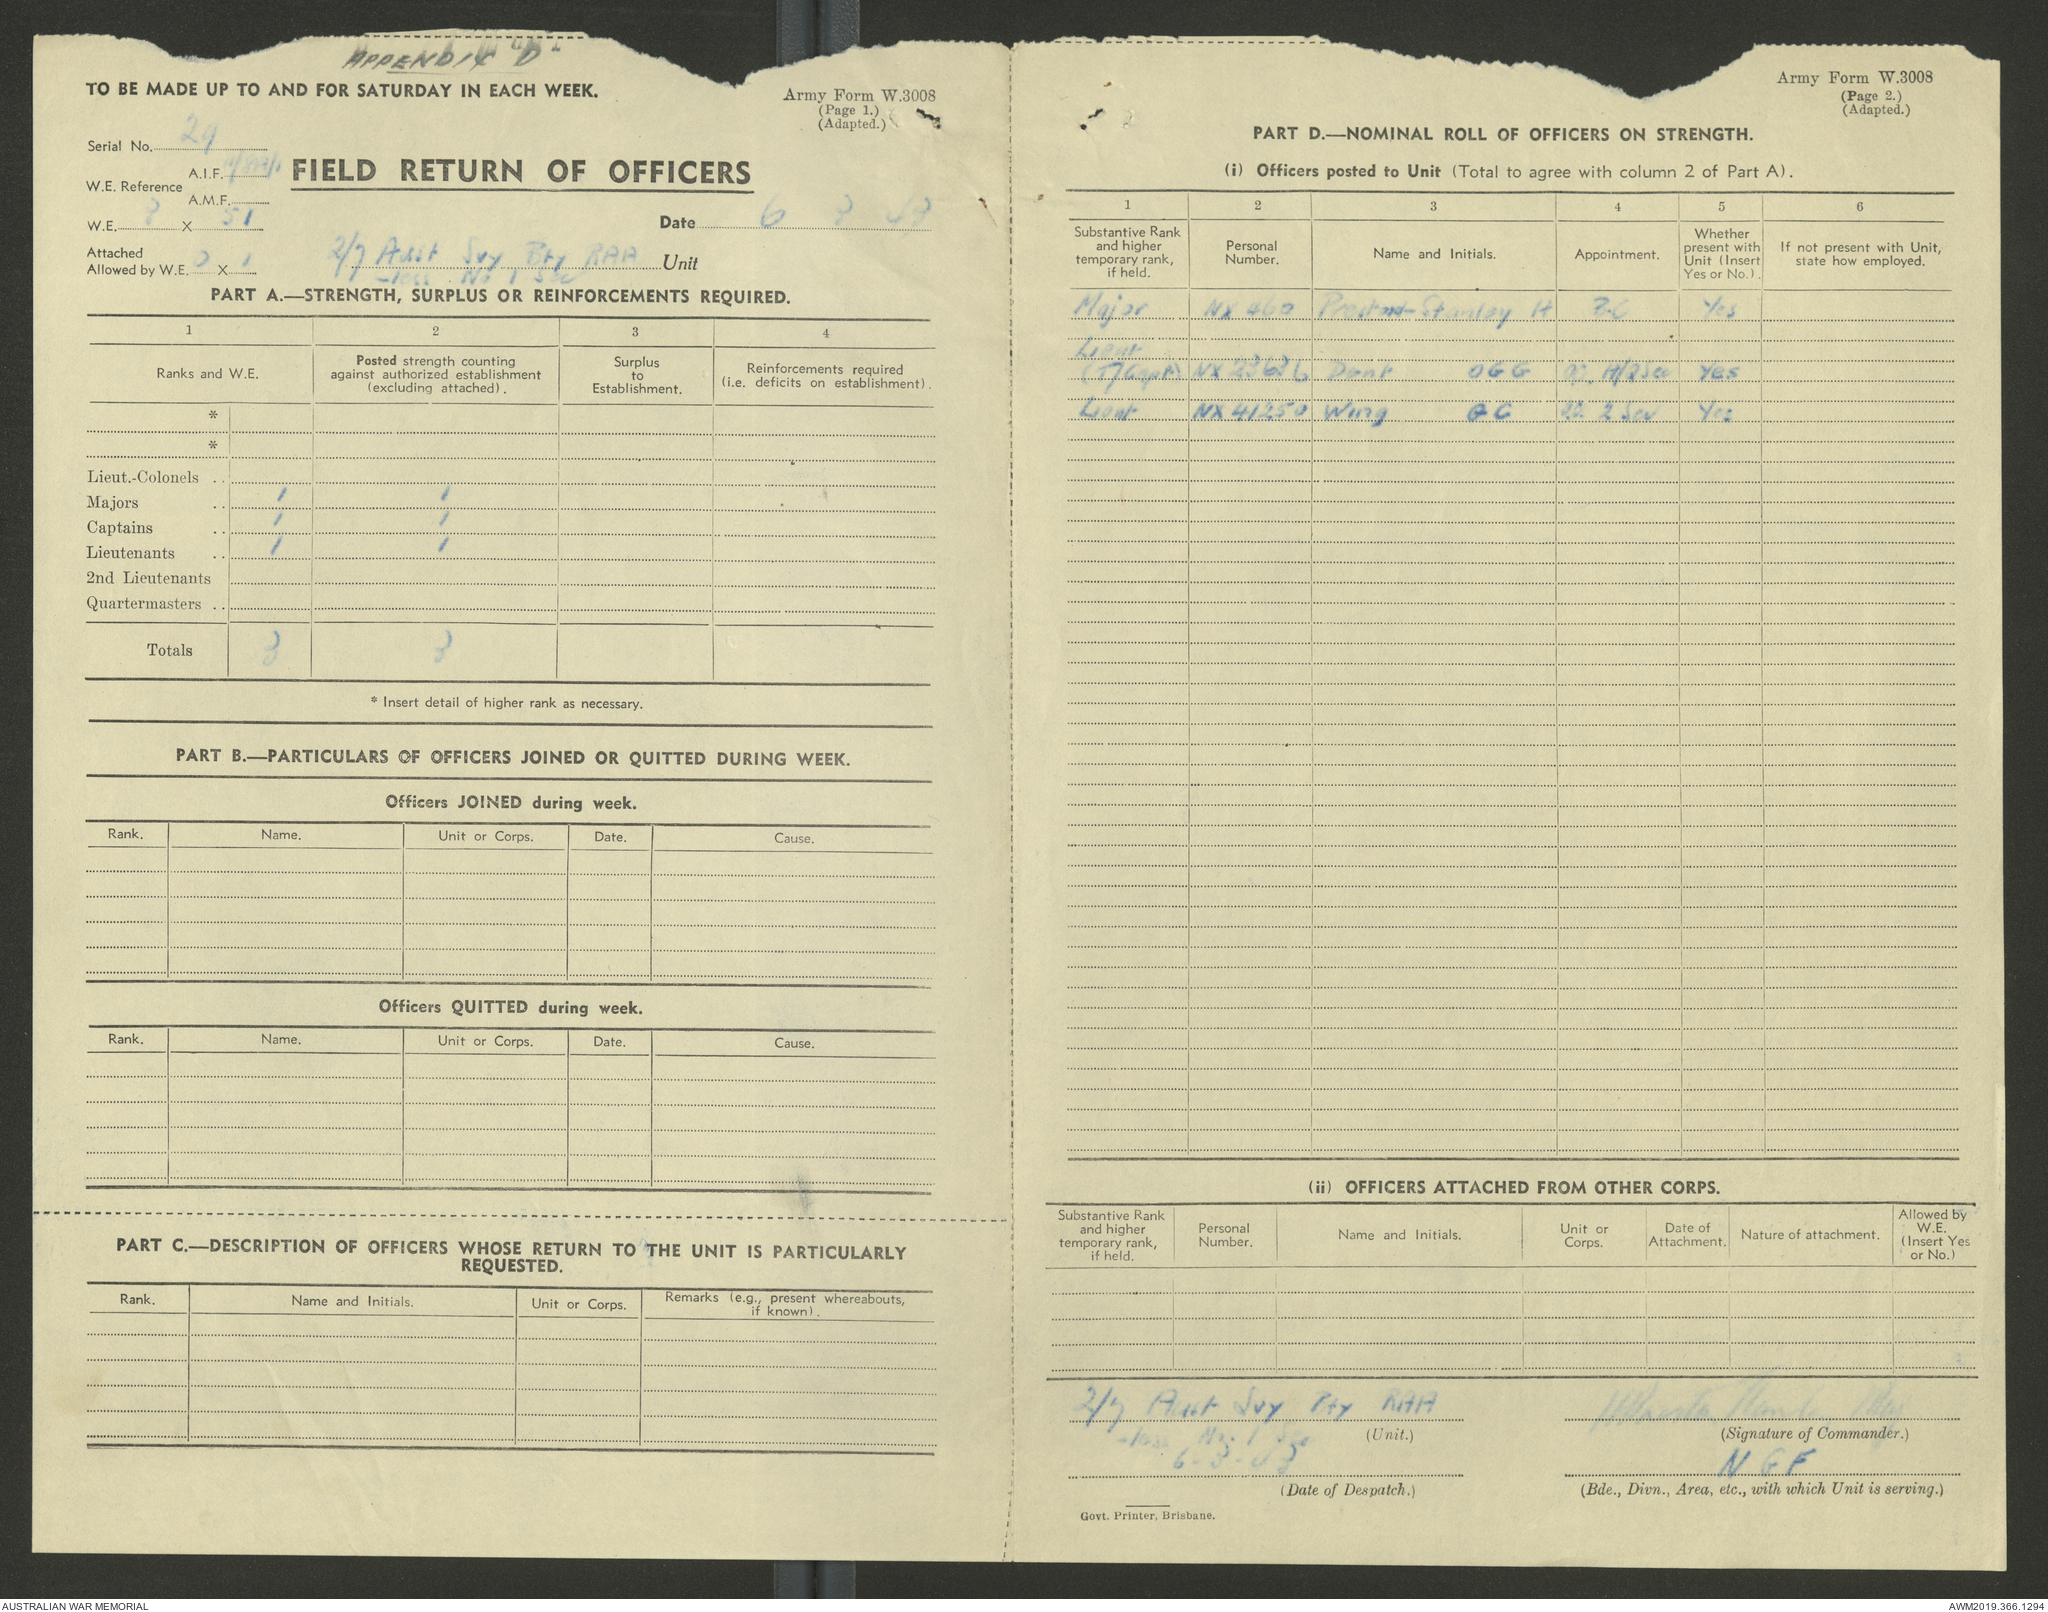 APPENDIX "D"
TO BE MADE UP TO AND FOR SATURDAY IN EACH WEEK.
Army Form W.3008
(Page 1.)
(Adapted.)
Serial No. 29
W.E. Reference
A.I.F.
A.M.F.
FIELD RETURN OF OFFICERS
W.E. 3 X 51
Date 6 3 43
Attached
Allowed by W.E. 0 X 1
2/7 Aust Svy Bty RAA Unit
-less No 1 Sec
PART A.—STRENGTH, SURPLUS OR REINFORCEMENTS REQUIRED.
1 2 3 4
Ranks and W.E.
Posted strength counting
against authorized establishment
(excluding attached).
Surplus
to
Establishment.
Reinforcements required
(i.e. deficits on establishment).
*
*
Lieut.-Colonels ..
Majors .. 1 1
Captains .. 1 1
Lieutenants .. 1 1
2nd Lieutenants
Quartermasters ..
Totals 3 3
* Insert detail of higher rank as necessary.
PART B.—PARTICULARS OF OFFICERS JOINED OR QUITTED DURING WEEK.
Officers JOINED during week.
Rank. Name. Unit or Corps. Date. Cause.
Officers QUITTED during week.
Rank. Name. Unit or Corps. Date. Cause.
PART C.—DESCRIPTION OF OFFICERS WHOSE RETURN TO THE UNIT IS PARTICULARLY
REQUESTED.
Rank. Name and Initials. Unit or Corps.
Remarks (e.g., present whereabouts,
if known).
Army Form W.3008
(Page 2.)
(Adapted.)
PART D.—NOMINAL ROLL OF OFFICERS ON STRENGTH.
(i) Officers posted to Unit (Total to agree with column 2 of Part A).
1 2 3 4 5 6
Substantive Rank
and higher
temporary rank,
if held.
Personal
Number.
Name and Initials.
Appointment.
Whether
present with
Unit (Insert
Yes or No.).
If not present with Unit,
state how employed.
Major NX 460 Preston-Stanley H BC Yes
Lieut
(T/Capt) NX 23636 Dent OGG Yes
Lieut NX 41250 Wing GC 2 Sec Yes
(ii) OFFICERS ATTACHED FROM OTHER CORPS.
Substantive Rank
and higher
temporary rank,
if held.
Personal
Number.
Name and Initials.
Unit or
Corps.
Date of
Attachment.
Nature of attachment.
Allowed by
W.E.
(Insert Yes
or No.)
2/7 Aust Svy Bty RAA
-less No. 1 Sec
(Unit.)
(Signature of Commander.)
6-3-43
N G F
(Date of Despatch.)
(Bde., Divn., Area, etc., with which Unit is serving.)
Govt. Printer, Brisbane.
AUSTRALIAN WAR MEMORIAL
AWM2019.366.1294